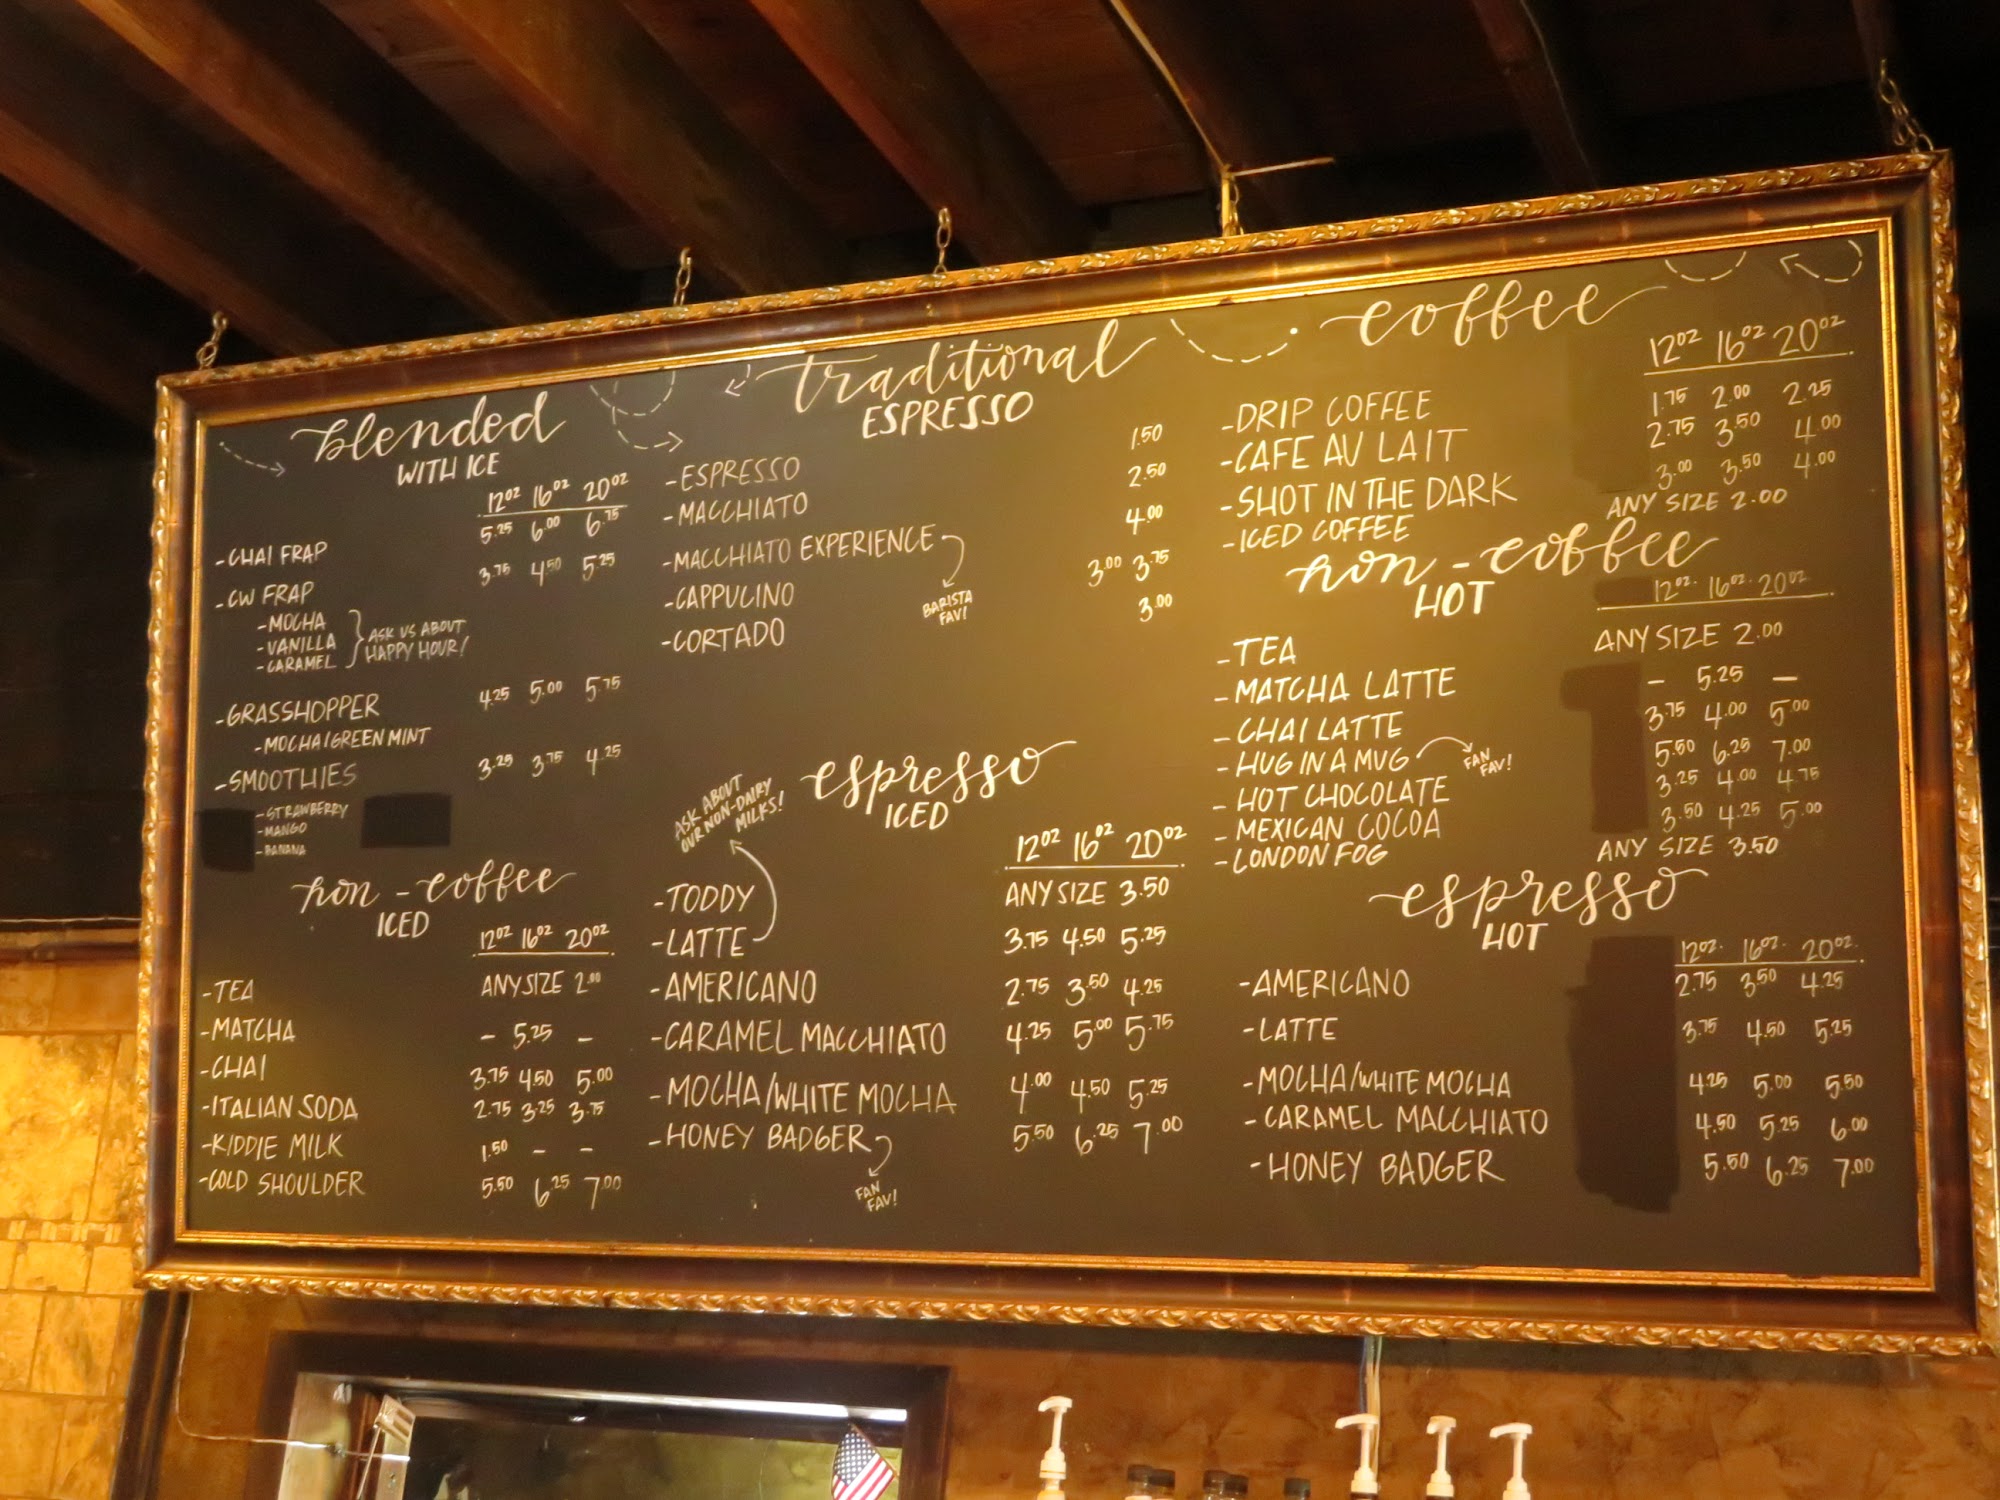 blended
WITH ICE
12oz 16oz 20oz
-CHAI FRAP 5.25 6.00 6.75
-CW FRAP 3.75 4.50 5.25
-MOCHA
-VANILLA
-CARAMEL
ASK US ABOUT
HAPPY HOUR!
-GRASSHOPPER 4.25 5.00 5.75
-MOCHA/GREEN MINT
-SMOOTHIES 3.25 3.75 4.25
-STRAWBERRY
-MANGO
-BANANA
non-coffee
ICED
12oz 16oz 20oz
-TEA ANY SIZE 2.00
-MATCHA - 5.25 -
-CHAI 3.75 4.50 5.00
-ITALIAN SODA 2.75 3.25 3.75
-KIDDIE MILK 1.50 - -
-COLD SHOULDER 5.50 6.25 7.00
traditional
ESPRESSO
-ESPRESSO 1.50
-MACCHIATO 2.50
-MACCHIATO EXPERIENCE 4.00
BARISTA
FAV!
-CAPPUCINO 3.00 3.75
-CORTADO 3.00
espresso
ICED
ASK ABOUT
OUR NON-DAIRY
MILKS!
12oz 16oz 20oz
-TODDY ANY SIZE 3.50
-LATTE 3.75 4.50 5.25
-AMERICANO 2.75 3.50 4.25
-CARAMEL MACCHIATO 4.25 5.00 5.75
-MOCHA/WHITE MOCHA 4.00 4.50 5.25
-HONEY BADGER 5.50 6.25 7.00
FAN
FAV!
coffee
12oz 16oz 20oz
-DRIP COFFEE 1.75 2.00 2.25
-CAFE AU LAIT 2.75 3.50 4.00
-SHOT IN THE DARK 3.00 3.50 4.00
-ICED COFFEE ANY SIZE 2.00
non-coffee
HOT
12oz. 16oz. 20oz
-TEA ANY SIZE 2.00
-MATCHA LATTE - 5.25 -
-CHAI LATTE 3.75 4.00 5.00
-HUG IN A MUG 5.50 6.25 7.00
FAN
FAV!
-HOT CHOCOLATE 3.25 4.00 4.75
-MEXICAN COCOA 3.50 4.25 5.00
-LONDON FOG ANY SIZE 3.50
espresso
HOT
12oz. 16oz. 20oz.
-AMERICANO 2.75 3.50 4.25
-LATTE 3.75 4.50 5.25
-MOCHA/WHITE MOCHA 4.25 5.00 5.50
-CARAMEL MACCHIATO 4.50 5.25 6.00
-HONEY BADGER 5.50 6.25 7.00